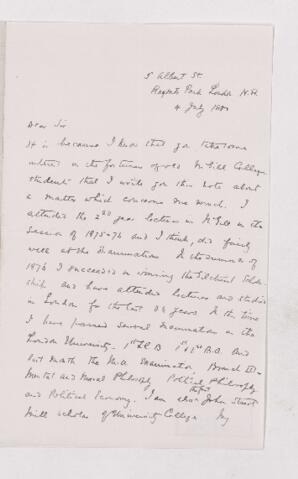 5 Albert St.
Regents Park London N.W.
4 July 1880
Dear Sir
It is because I know that you take some
interest in the fortunes of old McGill College
students that I write you this note about
a matter which concerns me much. I
attended the 2nd year lectures in McGill in the
session of 1875-76 and I think, did fairly
well at the Examinations. In the summer of
1876 I succeeded in winning the Gilchrist Schol-
ship and have attended lectures and studied
in London for the last years In the time
I have passed several Examinations in the
London University. 1st LL.B 1st & 2nd B.A. and
last month the M.A. Examination, Branch III-
Mental and Moral Philosophy Political Philosophy
and Political Economy. I am also John Stuart
Mill scholar of University College My